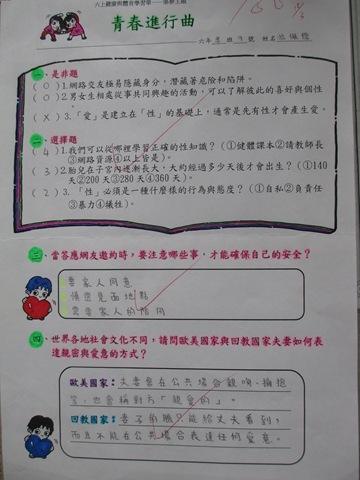 六上健康與體育學習單
青春進行曲
六年 班 9 號 姓名
一、是非題
( O )1.網路交友極易隱藏身分,潛藏著危險和陷阱。
( O )2.男女生相處從事共同興趣的活動,可以了解彼此的喜好與個性。
( X )3.「愛」是建立在「性」的基礎上,通常是先有性才會產生愛。
二、選擇題
( 4 )1.我們可以從哪裡學習正確的性知識?(①健康課本②請教師長③網路資源④以上皆是)。
( 3 )2.胎兒在子宮內逐漸長大,大約經過多少天後才會出生?(①140天②200天③280天④360天)。
( 2 )3.「性」必須是一種什麼樣的行為與態度?(①自私②負責任③暴力④犧牲)。
三、當答應網友邀約時,要注意哪些事,才能確保自己的安全?
要家人同意
慎選見面地點
需要家人的陪同
四、世界各地社會文化不同,請問歐美國家與回教國家夫妻如何表達親密與愛意的方式?
歐美國家:夫妻會在公共場合親吻、擁抱
等,也會稱對方「親愛的」。
回教國家:妻子的臉只能給丈夫看到,
而且不能在公共場合表達任何愛意。